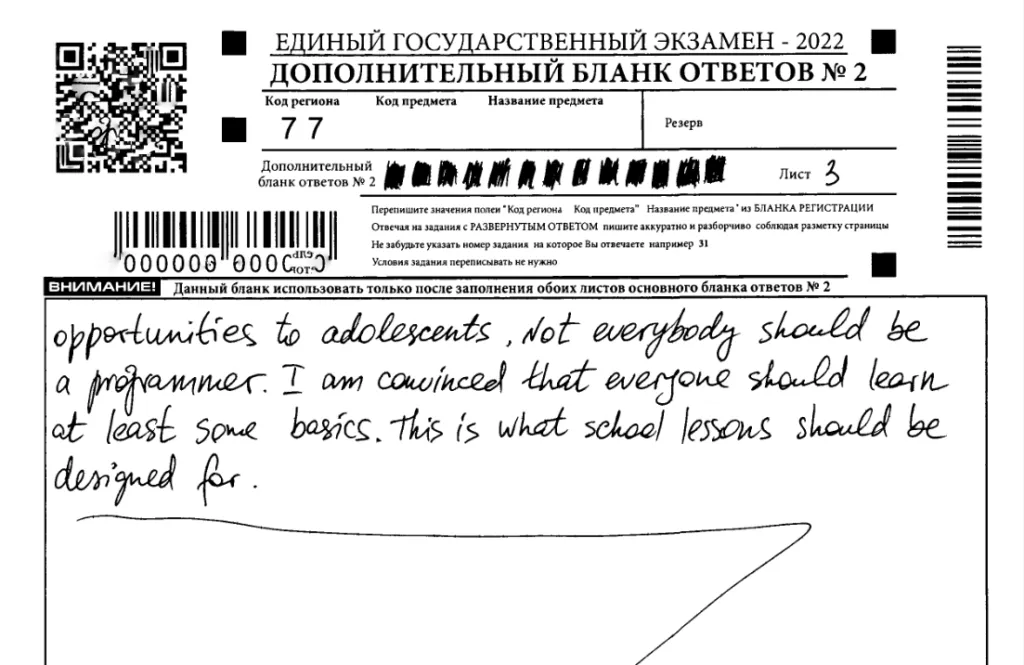 ЕДИНЫЙ ГОСУДАРСТВЕННЫЙ ЭКЗАМЕН - 2022
ДОПОЛНИТЕЛЬНЫЙ БЛАНК ОТВЕТОВ № 2
Код региона Код предмета Название предмета
77
Резерв
Дополнительный
бланк ответов № 2
Лист 3
Перепишите значения полей "Код региона Код предмета" Название предмета" из БЛАНКА РЕГИСТРАЦИИ
Отвечая на задания с РАЗВЕРНУТЫМ ОТВЕТОМ пишите аккуратно и разборчиво соблюдая разметку страницы
Не забудьте указать номер задания на которое Вы отвечаете например 31
Условия задания переписывать не нужно
ВНИМАНИЕ! Данный бланк использовать только после заполнения обоих листов основного бланка ответов № 2
opportunities to adolescents, Not everybody should be
a programmer. I am convinced that everyone should learn
at least some basics. This is what school lessons should be
designed for.